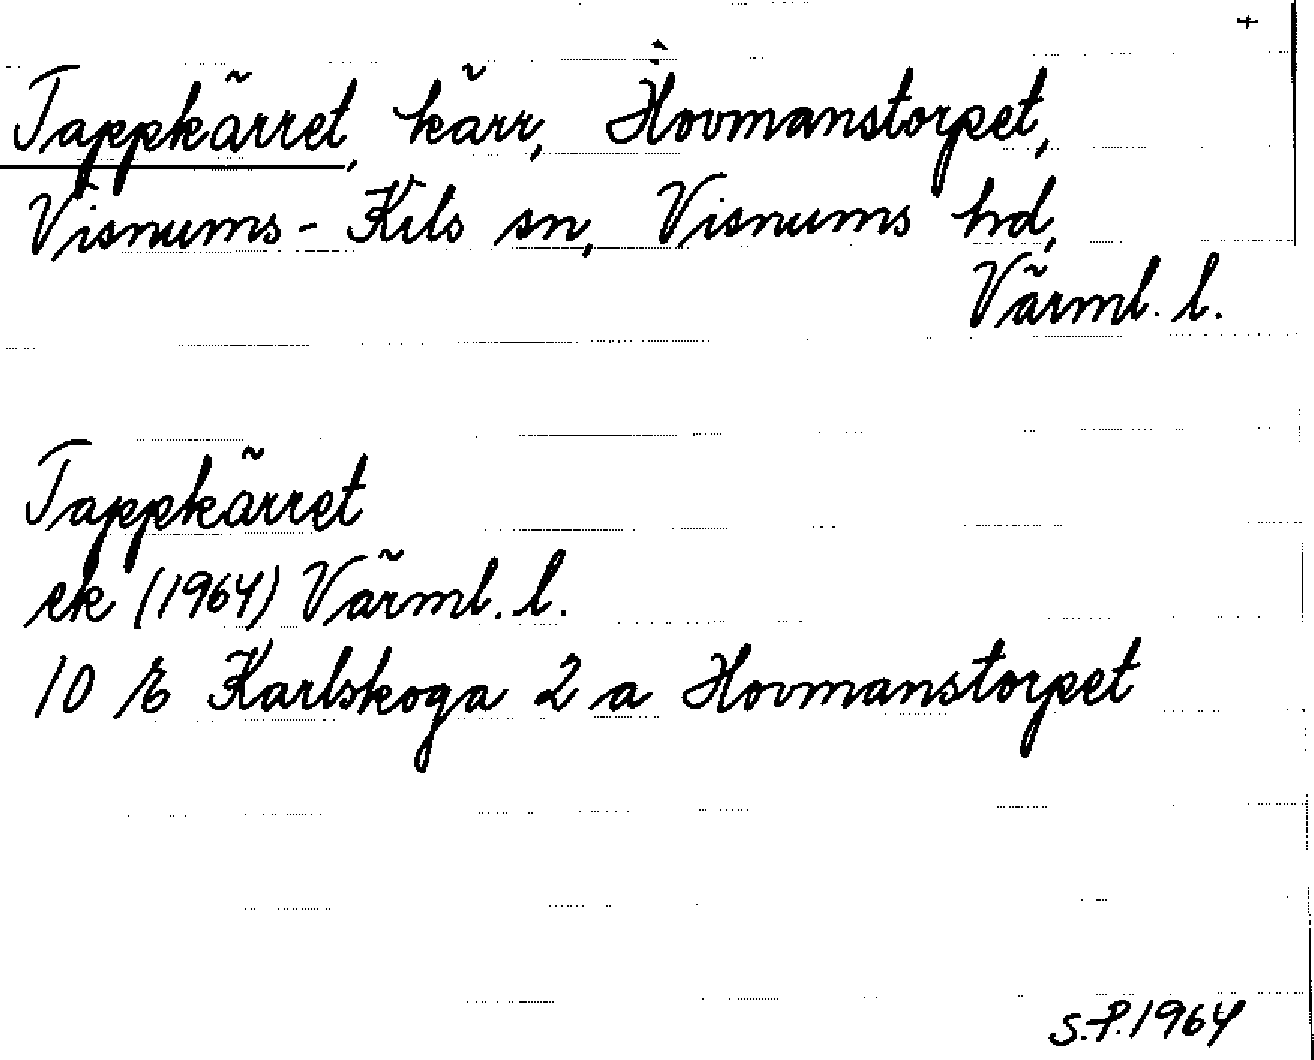 +
Tappkärret, kärr, Hovmanstorpet,
Visnums-Kils sn, Visnums hd,
Värml. l.
Tappkärret
ek (1964) Värml. l.
10 E Karlskoga 2 a Hovmanstorpet
S.P. 1964